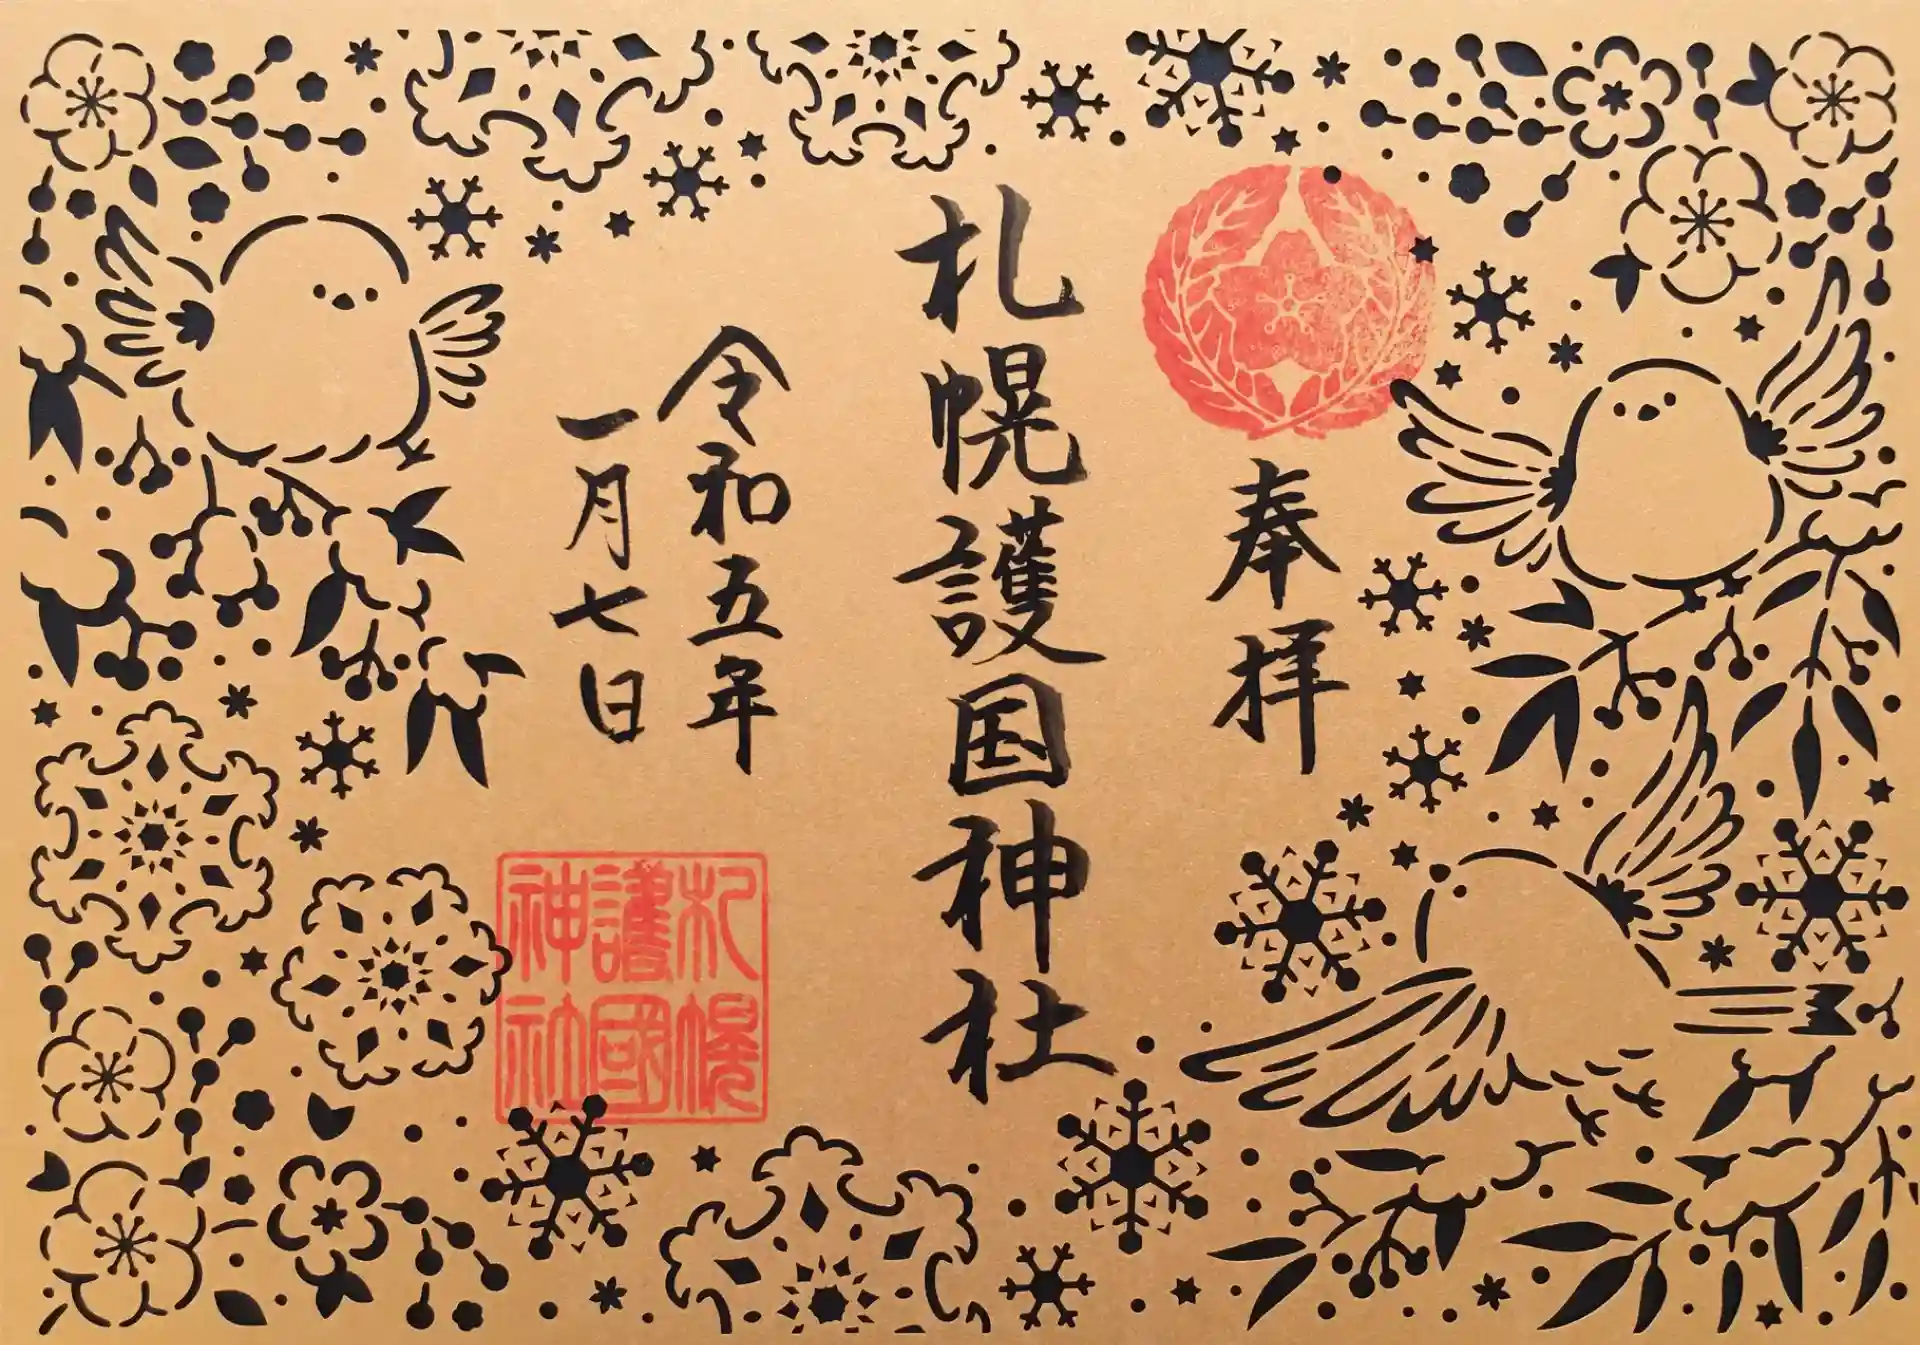 奉拝
札幌護国神社
令和五年
一月七日
札幌
護國
神社